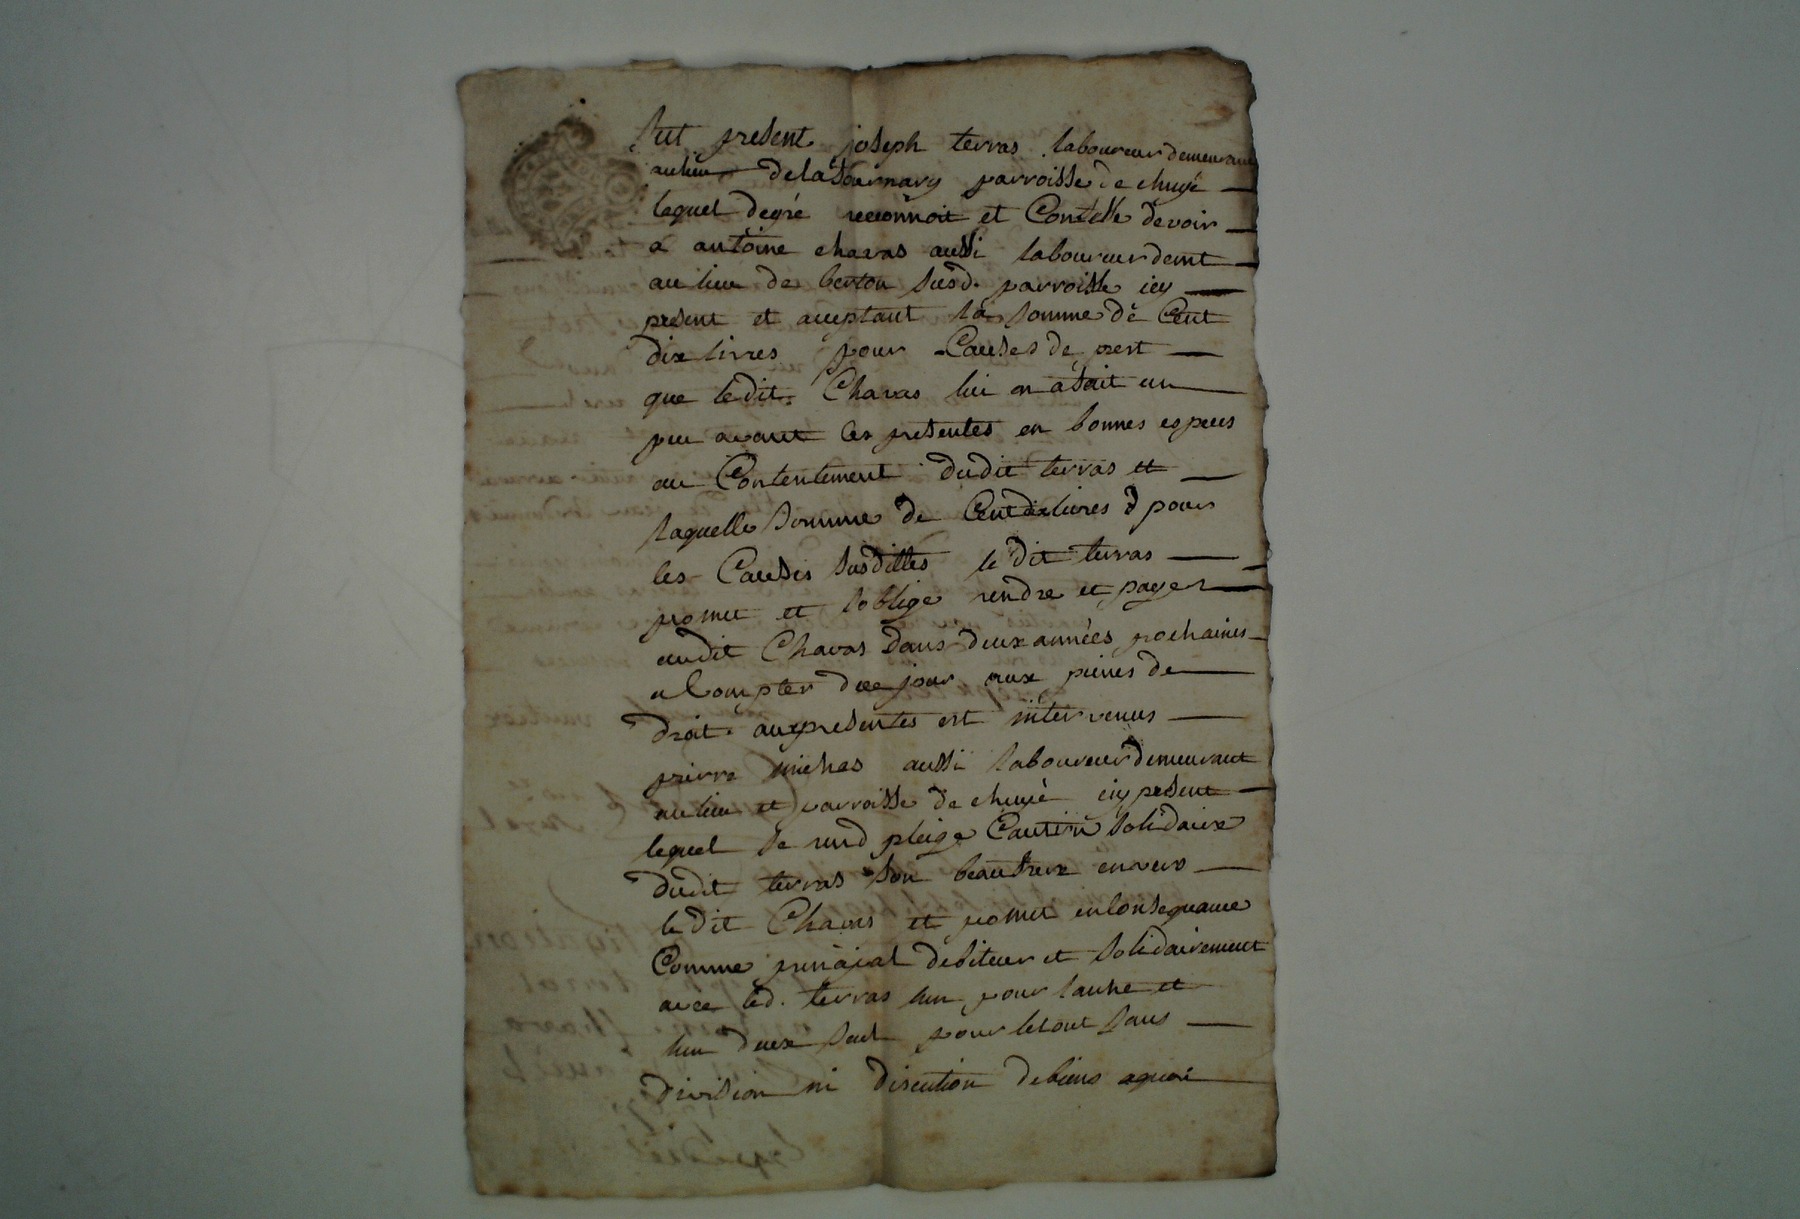 fut present joseph terras laboureur demeurant
au lieu de la fournary parroisse de chuyé
lequel degré reconnoit et Confesse devoir
a antoine chavas aussi laboureur demt
au lieu de berton susd. parroisse icy
present et acceptant la somme de Cent
dix livres pour Causes de prest
que ledit Chavas lui en a fait un
peu avant les presentes en bonnes especes
au Contentement dudit terras et
laquelle somme de Cent dix livres pour
les Causes susdittes le dit terras
promet et soblige rendre et payer
audit Chavas dans deux années prochaines
a Compter de ce jour aux peines de
droit aux presentes est intervenus
pierre michas aussi laboureur demeurant
au lieu et parroisse de chuyé icy present
lequel se rend pleige Caution solidaire
dudit terras son beaufrere envers
le dit Chavas et promet en Consequance
Comme principal debiteur et solidairement
avec led. terras lun pour lautre et
lun deux seul pour le tout sans
division ni discution de biens aquoi